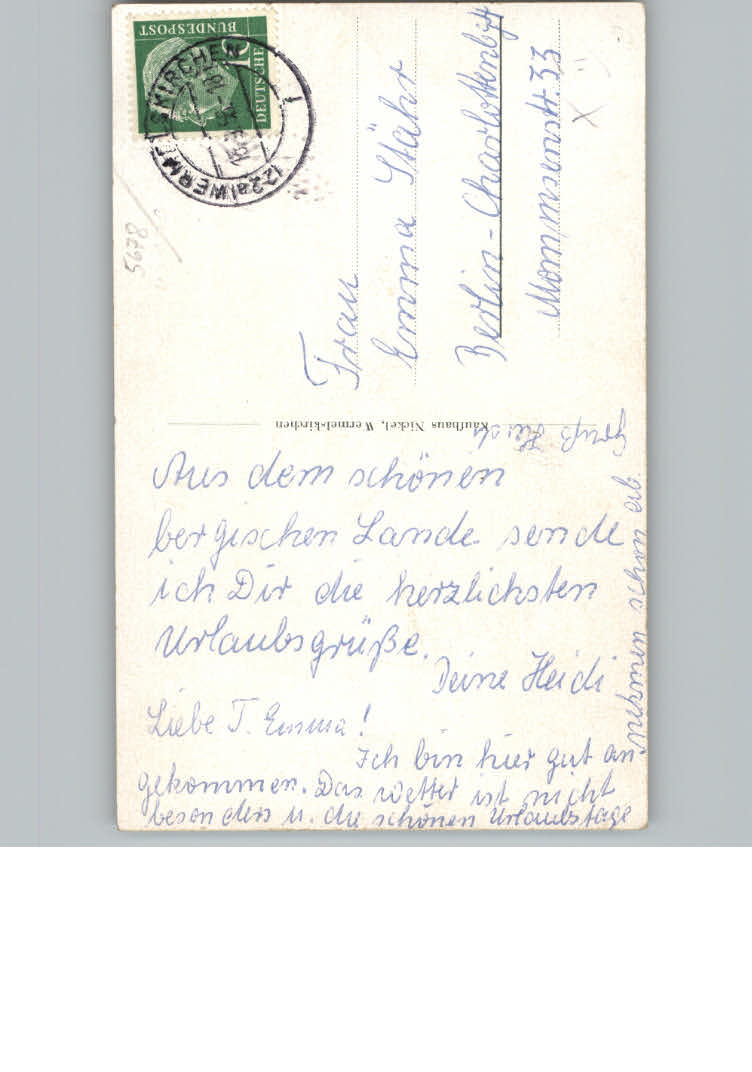 DEUTSCHE
BUNDESPOST
10
(22a) WERMELSKIRCHEN
1
5678
Frau
Emma Stähr
Berlin-Charlottenbg
Mommsenstr. 33
Kaufhaus Nickel, Wermelskirchen
Aus dem schönen
bergischen Lande sende
ich Dir die herzlichsten
Urlaubsgrüße.
Deine Heidi
Liebe T. Emma!
Ich bin hier gut an-
gekommen. Das Wetter ist nicht
besonders u. die schönen Urlaubstage
nehmen schon ab.
Gruß